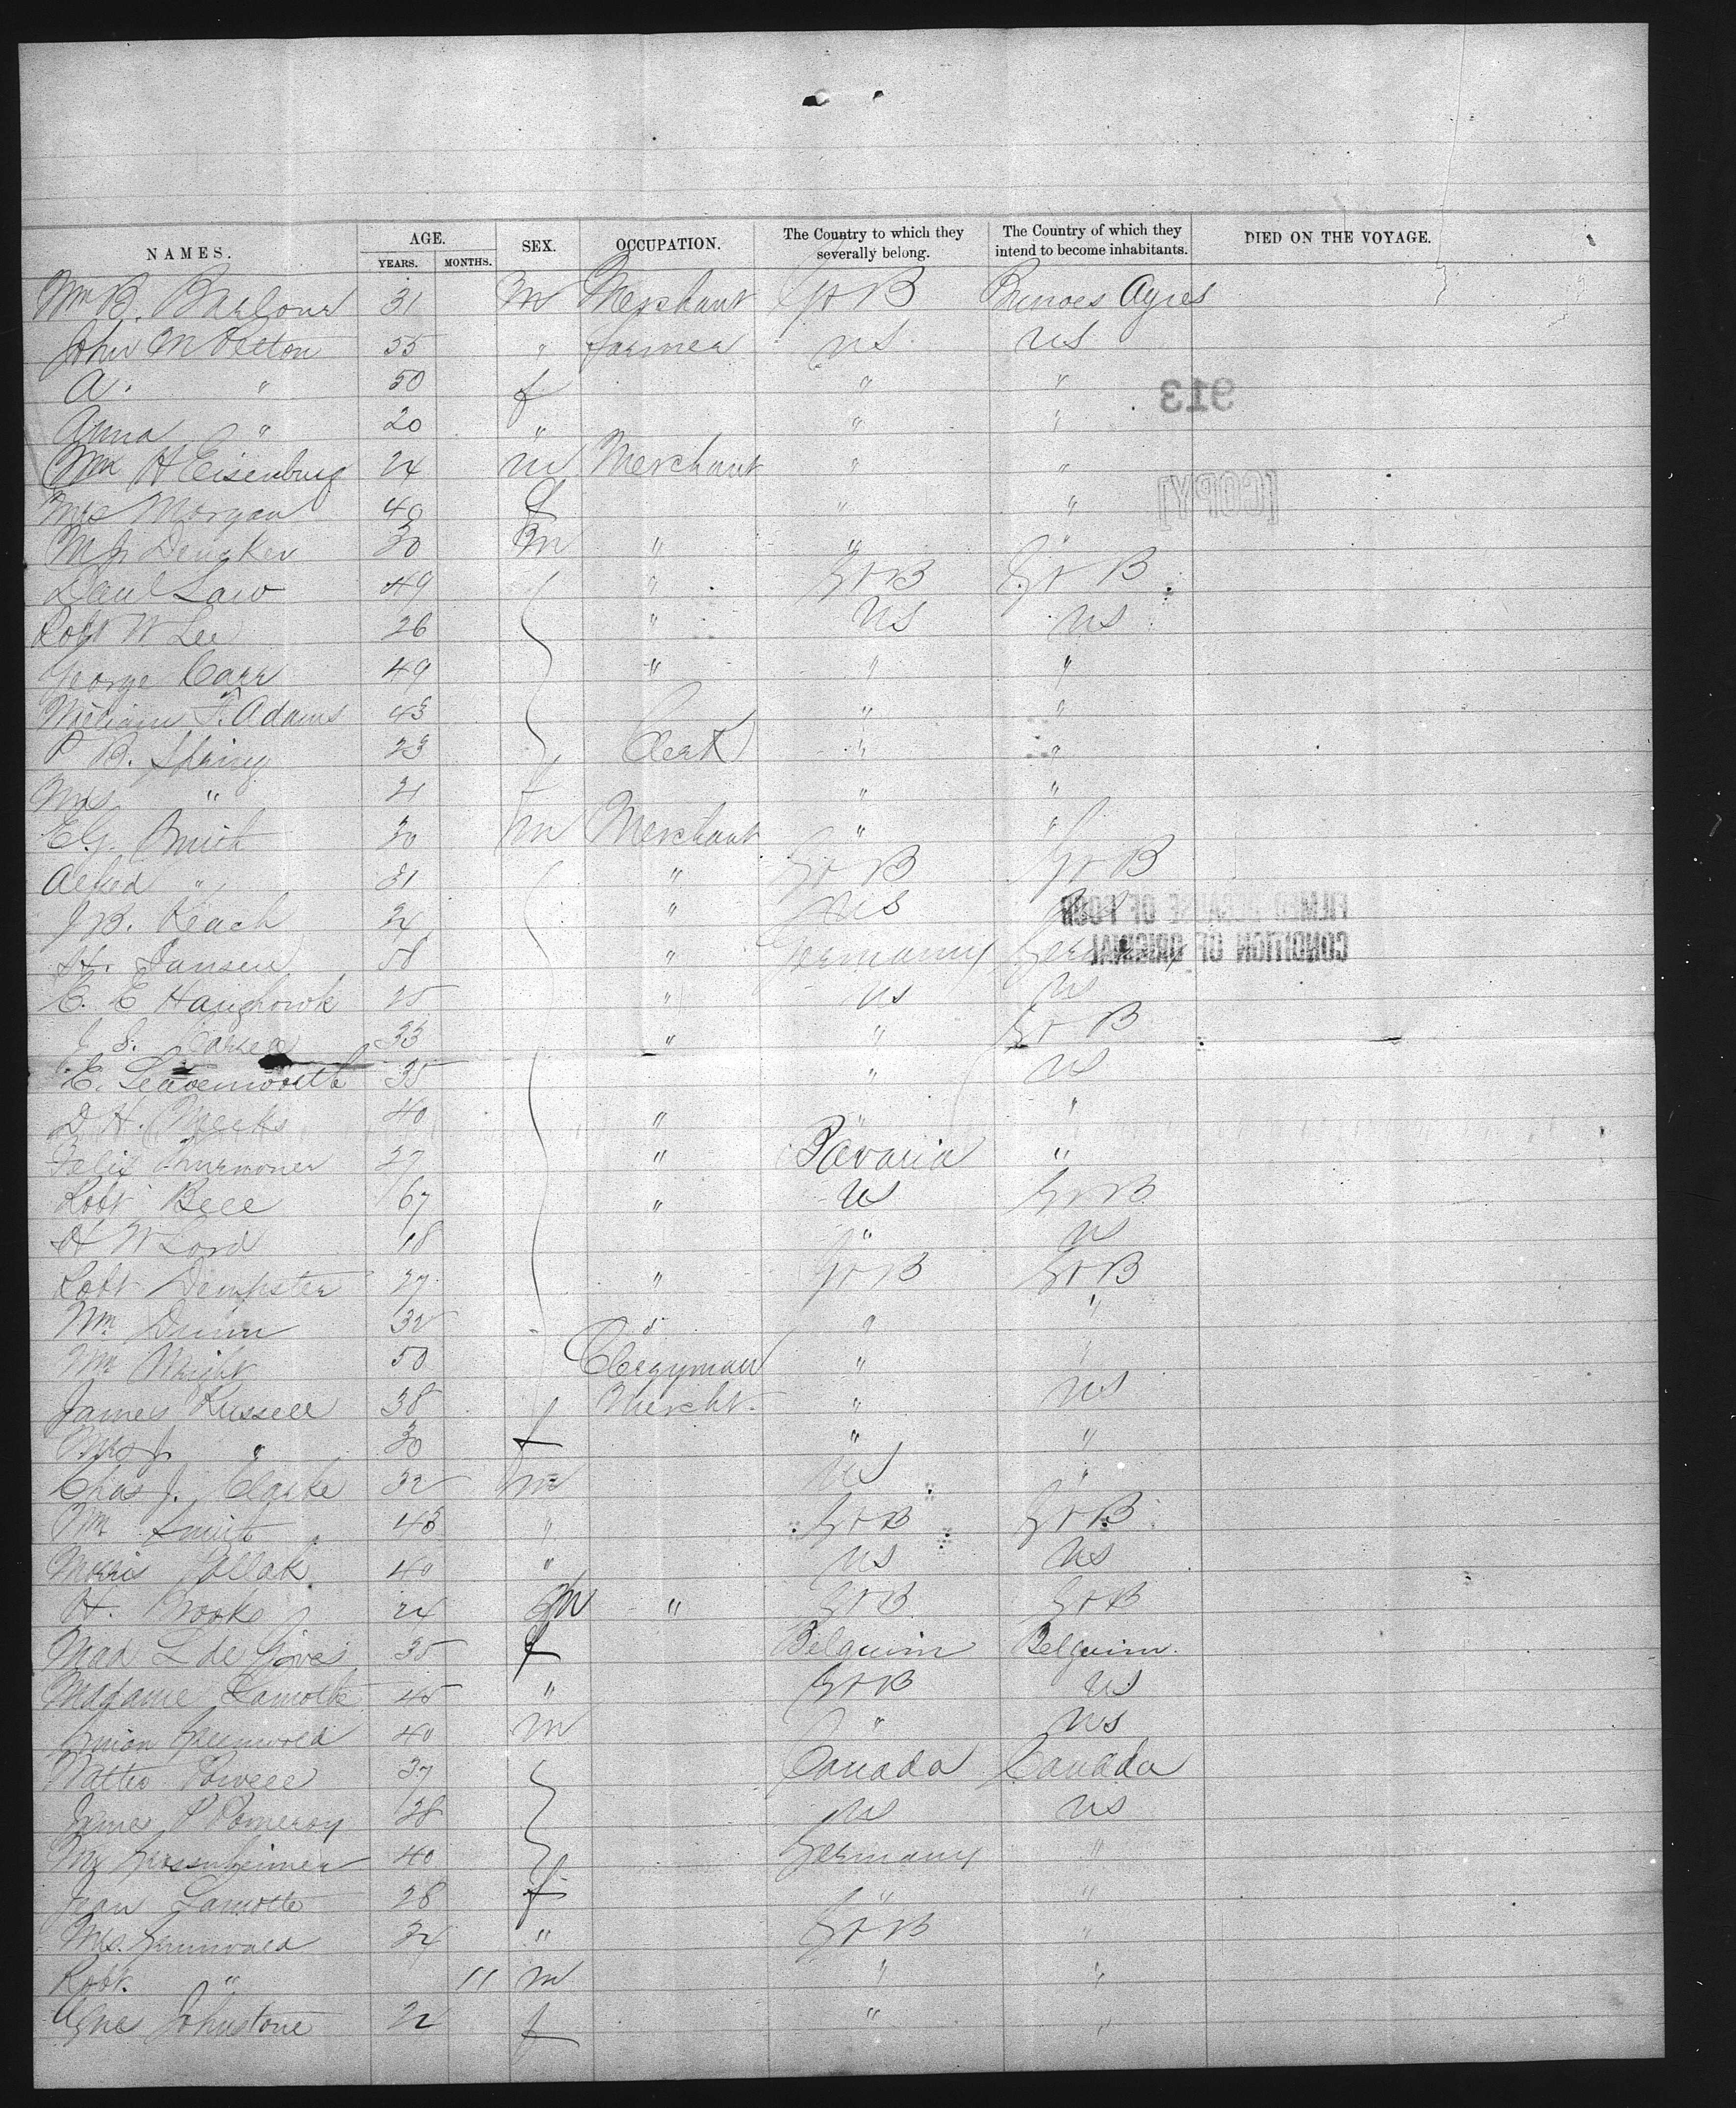 NAMES. AGE. YEARS. MONTHS. SEX. OCCUPATION. The Country to which they severally belong. The Country of which they intend to become inhabitants. DIED ON THE VOYAGE.
Wm B. Barbour 31 M Merchant Gt B Buenos Ayres
John M Pelton 55 " farmer US US
A. " 50 f " "
913
Anna " 20 " " "
Wm H Eisenburg 24 m Merchant " "
Mrs Morgan 40 f " "
[COPY]
M J 30 m " " "
Danl Law 49 " Gt B Gt B
Robt W Lee 26 " US US
George Carr 49 " " "
William F. Adams 43 " "
P B. Spring 23 Clerk " "
Mrs " 21 f " "
E G. 30 m Merchant " "
Alfred " 31 " Gt B Gt B
J B. Keach 24 " US
FILMED BECAUSE OF POOR
H. Jansen 58 " Germany Germany
CONDITION OF ORIGINAL
E. E Haughwout 25 " US US
J S. 33 " " Gt B
E. Leavenworth 35 " US
D H. Meeks 40 " "
Felix 27 " Bavaria "
Robt Bell 67 " US Gt B
H W Lord 18 " US
Robt Dempster 27 " Gt B Gt B
Wm Dunn 32 " " "
Wm Wright 50 Clergyman " "
James Russell 38 Mercht. " US
Mrs J. " 30 f " "
Chas J. Clarke 32 m US "
Wm Smith 43 " Gt B Gt B
Morris Pollak 40 " US US
H. Brooks 24 M " Gt B Gt B
Mad L de 35 f Belguim Belguim
Madame Lamotte 45 " Gt B US
Simon Greenwald 40 m " US
Walter Powell 27 Canada Canada
James P Pomeroy 28 US US
40 Germany "
Jean Lamotte 28 f " "
Mrs. 24 " Gt B "
Robt. " 11 m " "
Agnes Johnstone 22 f " "